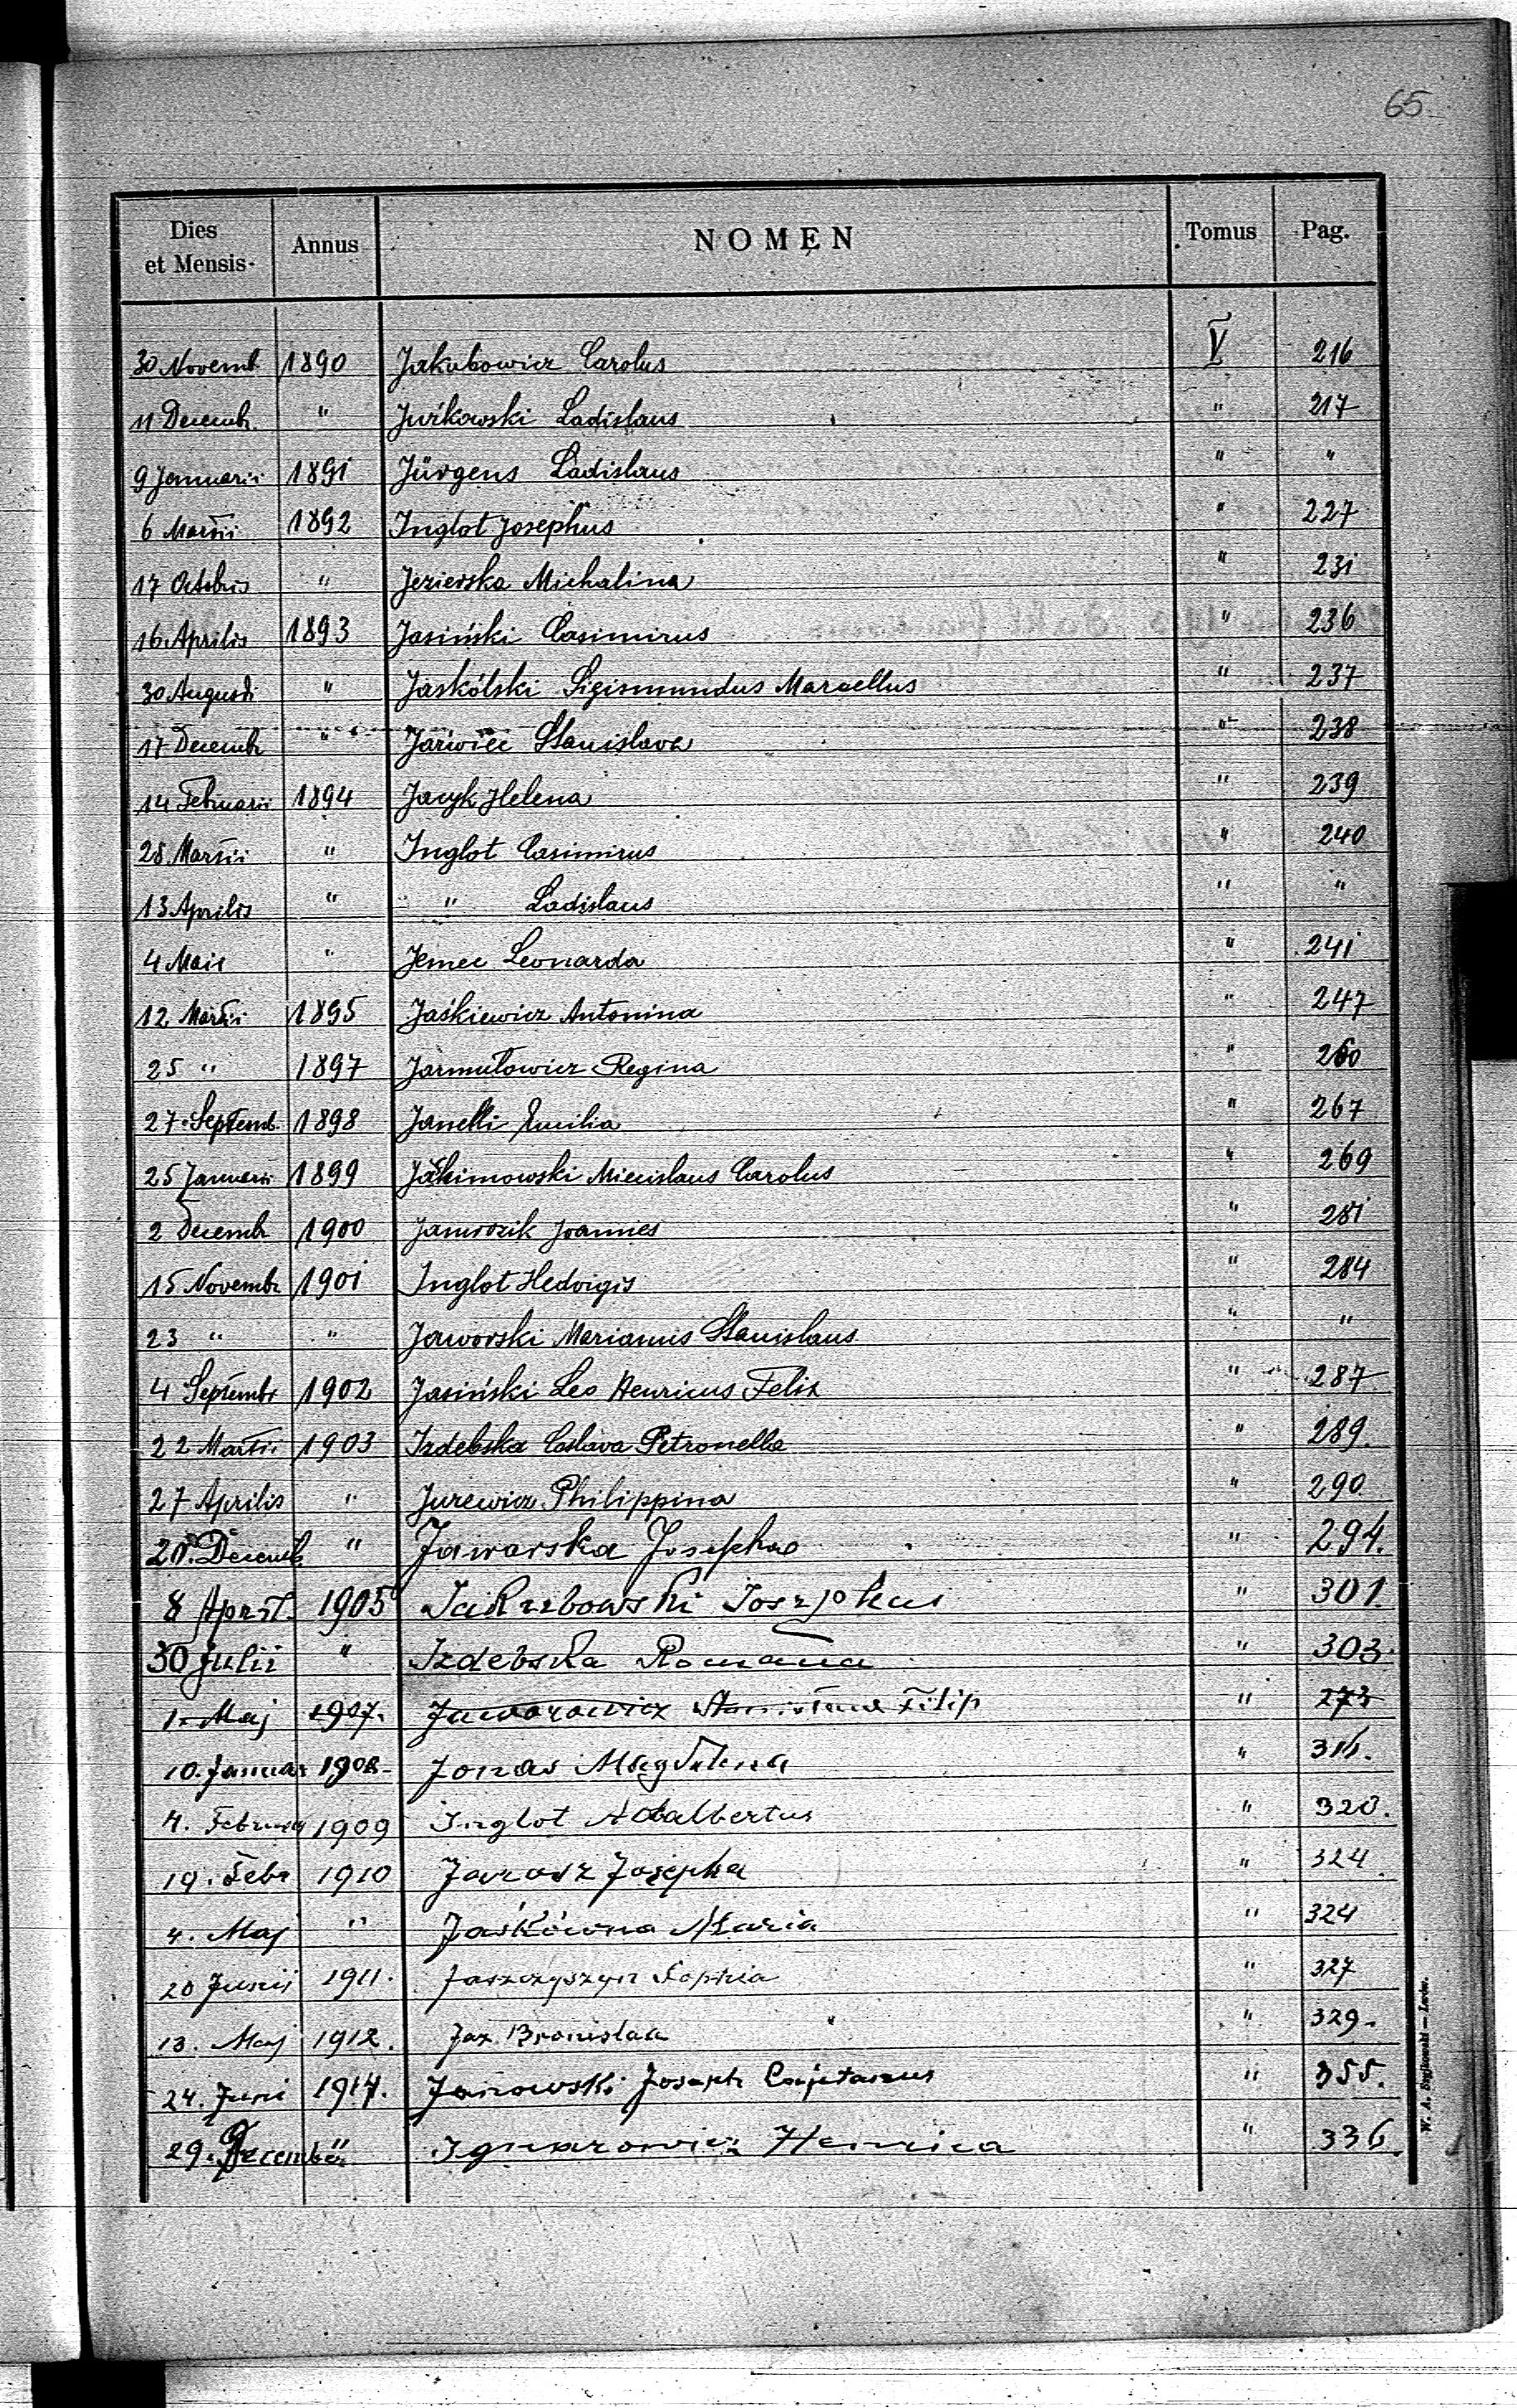 65
Dies et Mensis Annus NOMEN Tomus Pag.
30 Novemb. 1890 Jakubowicz Carolus V 216
11 Decemb. " Juśkowski Ladislaus " 217
9 Januarii 1891 Jürgens Ladislaus " "
6 Martii 1892 Inglot Josephus " 227
17 Octobris " Jezierska Michalina " 231
16 Aprilis 1893 Jasiński Casimirus " 236
30 Augusti " Jaskólski Sigismundus Marcellus " 237
17 Decemb " Jarwiec Stanislava " 238
14 Februarii 1894 Jacyk Helena " 239
28 Martii " Inglot Casimirus " 240
13 Aprilis " " Ladislaus " "
4 Maii " Jemec Leonarda " 241
12 Martii 1895 Jaśkiewicz Antonina " 247
25 " 1897 Jarmułowicz Regina " 260
27 Septemb. 1898 Janelli Emilia " 267
25 Januarii 1899 Jakimowski Miecislaus Carolus " 269
2 Decemb 1900 Jamrozik Joannes " 281
15 Novemb. 1901 Inglot Hedvigis " 284
23 " " Jaworski Marianus Stanislaus " "
4 Septembr 1902 Jasiński Leo Henricus Felix " 287
22 Martii 1903 Izdebska Česlava Petronella " 289.
27 Aprilis " Jurewicz Philippina " 290
20. Decemb " Jaworska Josepha " 294.
8 April. 1905 Jakubowski Josephus " 301.
30 Julii " Izdebska Romana " 303.
1. Maj 1907. Jaworowicz Filip " 273
10. Januar 1908. Jonas Magdalena " 316.
4. Februar 1909 Inglot Adalbertus " 320.
19. Febr 1910 Jarosz Josepha " 324
4. Maj " Jaśkówna Maria " 324
20 Junii 1911. Jaszczyszyn Sophia " 327
13. Maj 1912. Jax Bronislaa " 329.
24. Juni 1914. Janowski Joseph Cajetanus " 355.
29. Decemb " Ignarowicz Henrica " 336.